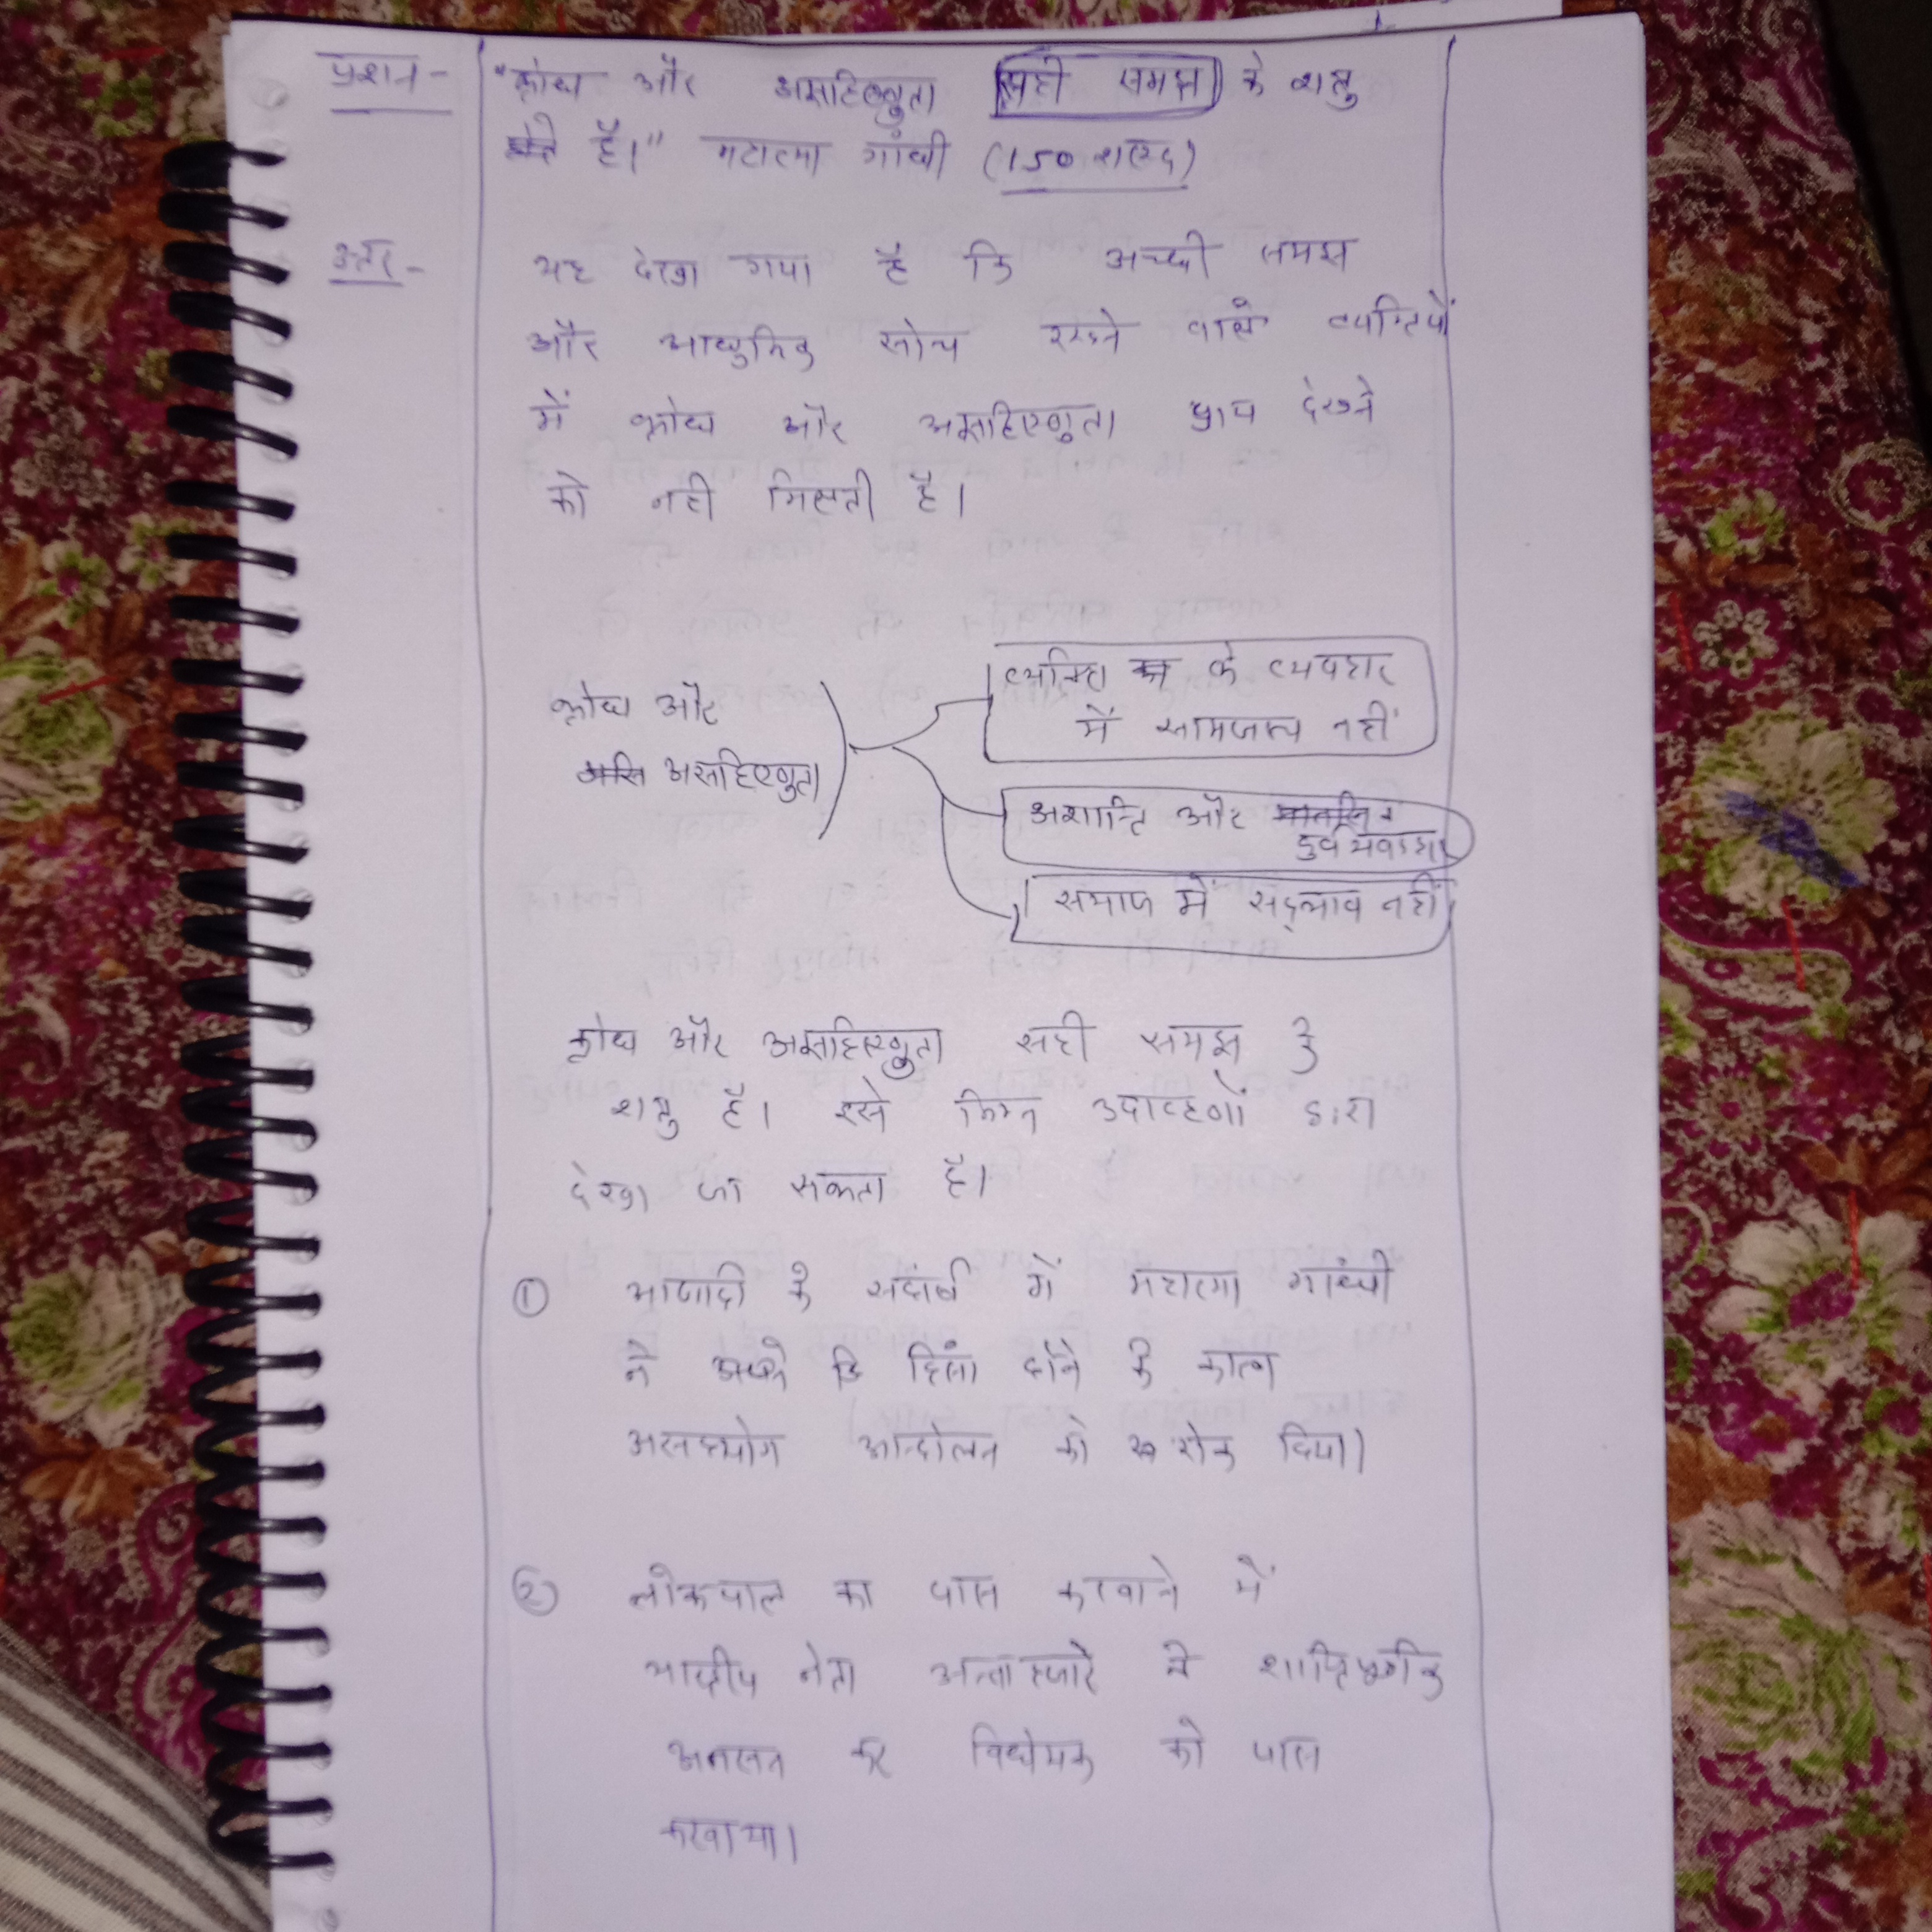 प्रशन -
"क्रोध और असहिष्णुता सही समझ के शत्रु
है।" महात्मा गांधी (150 शब्द)
उत्तर -
यह देखा गया है कि अच्छी समझ
और आधुनिक सोच रखने वाले व्यक्तियों
में क्रोध और असहिष्णुता प्राय देखने
को नही मिलती है।
क्रोध और
असहिष्णुता
व्यक्ति के व्यवहार
में सामजस्य नहीं
अशान्ति और
दुर्व्यवहार
समाज में सद्भाव नहीं
क्रोध और असहिष्णुता सही समझ के
शत्रु है। इसे निम्न उदाहरणों द्वारा
देखा जा सकता है।
① आजादी के सदंर्भ में महात्मा गांधी
ने हिंसा होने के कारण
असहयोग आन्दोलन को रोक दिया।
② लोकपाल का पास करवाने में
भारतीय नेता अन्ना हजारे ने शान्तिपूर्वक
अनसन कर विधेयक को पास
करवाया।